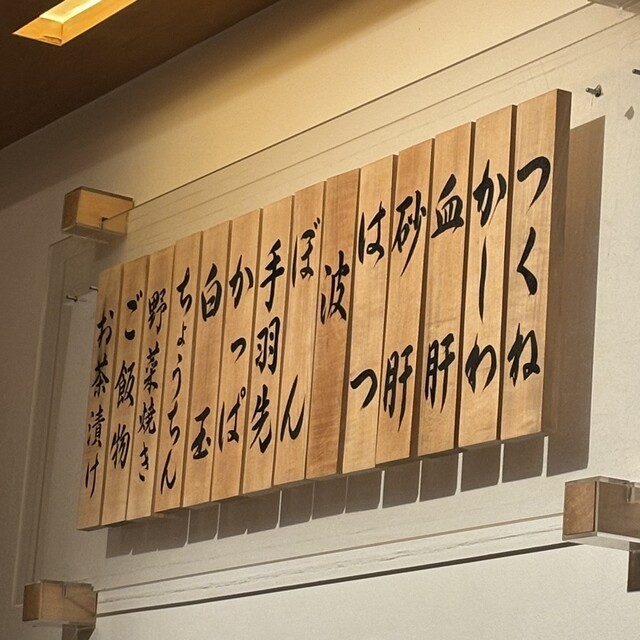 つくね
かしわ
血肝
砂肝
はつ
波
ぼん
手羽先
かっぱ
白玉
ちょうちん
野菜焼き
ご飯物
お茶漬け